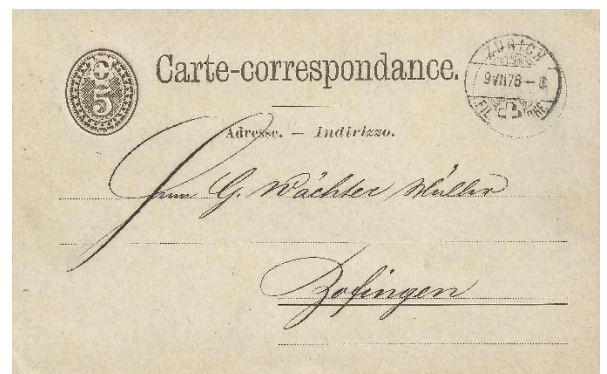 C
5
Carte-correspondance.
ZÜRICH
9 VII 78 – 8
FIL
Adresse. — Indirizzo.
Herrn G. Wächter Müller
Zofingen